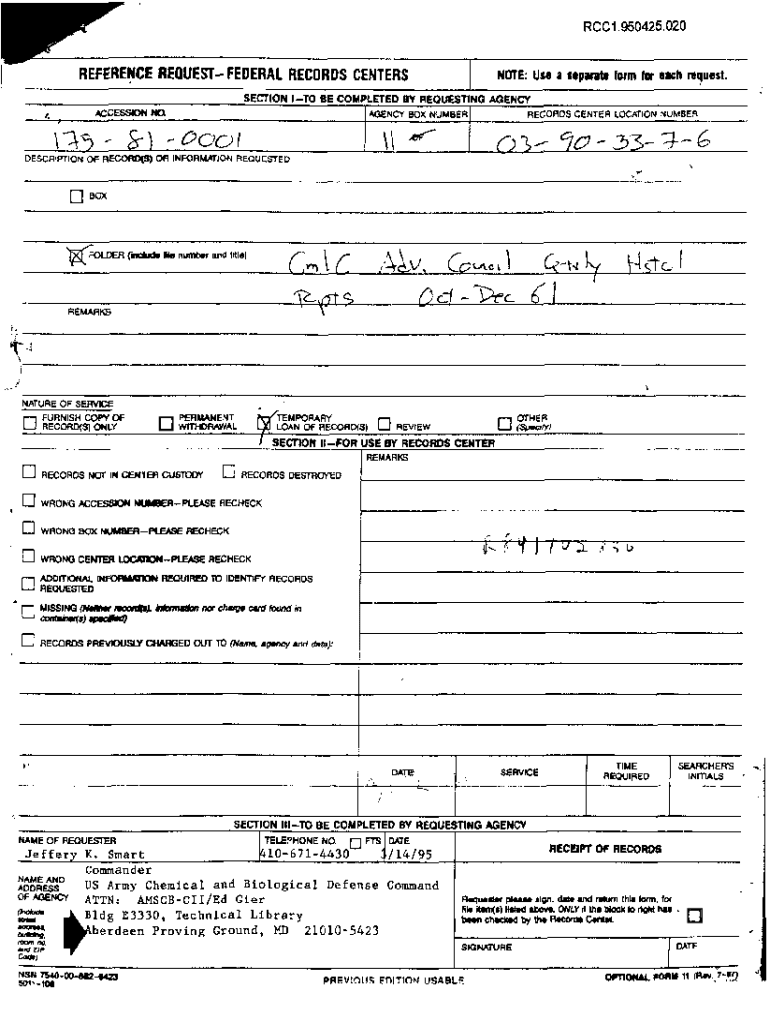 RCC1.950425.020
REFERENCE REQUEST—FEDERAL RECORDS CENTERS
NOTE: Use a separate form for each request.
SECTION I—TO BE COMPLETED BY REQUESTING AGENCY
ACCESSION NO.
AGENCY BOX NUMBER
RECORDS CENTER LOCATION NUMBER
175-81-0001
11
03-90-33-7-6
DESCRIPTION OF RECORD(S) OR INFORMATION REQUESTED
BOX
FOLDER (include file number and title)
CmlC Adv. Council Qrtrly Hstcl
Rpts Oct-Dec 61
REMARKS
NATURE OF SERVICE
FURNISH COPY OF RECORD(S) ONLY
PERMANENT WITHDRAWAL
TEMPORARY LOAN OF RECORD(S)
REVIEW
OTHER (Specify)
SECTION II—FOR USE BY RECORDS CENTER
REMARKS
RECORDS NOT IN CENTER CUSTODY
RECORDS DESTROYED
WRONG ACCESSION NUMBER—PLEASE RECHECK
WRONG BOX NUMBER—PLEASE RECHECK
WRONG CENTER LOCATION—PLEASE RECHECK
ADDITIONAL INFORMATION REQUIRED TO IDENTIFY RECORDS
REQUESTED
MISSING (Neither record(s), information nor charge card found in
container(s) specified)
RECORDS PREVIOUSLY CHARGED OUT TO (Name, agency and date):
DATE
SERVICE
TIME REQUIRED
SEARCHER'S INITIALS
SECTION III—TO BE COMPLETED BY REQUESTING AGENCY
NAME OF REQUESTER
TELEPHONE NO.
FTS
DATE
RECEIPT OF RECORDS
Jeffery K. Smart
410-671-4430
3/14/95
NAME AND
ADDRESS
OF AGENCY
(Include
street
address,
building,
room no.
and ZIP
Code)
Commander
US Army Chemical and Biological Defense Command
ATTN: AMSCB-CII/Ed Gier
Bldg E3330, Technical Library
Aberdeen Proving Ground, MD 21010-5423
Requester please sign, date and return this form, for
file item(s) listed above, ONLY if the block to right has
been checked by the Records Center.
SIGNATURE
DATE
NSN 7540-00-682-6423
5011-108
PREVIOUS EDITION USABLE
OPTIONAL FORM 11 (Rev.